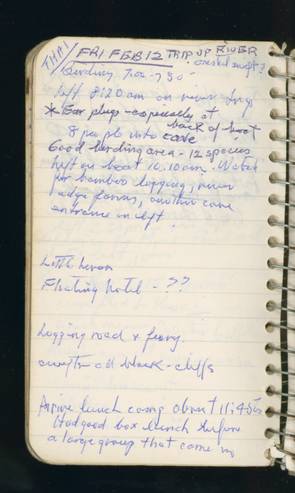 THAI
FRI FEB 12 TRIP UP RIVER
Birding 7:00-7:30 crested swift?
left 8:20 am on river
* Ear plugs - especially at
back of boat
8 people into cave
Good birding area - 12 species
left on boat 10:10 am. Watch
for bamboo logging, river
edge farms, another cave
entrance on left.
Little heron
Floating hotel - ??
Logging road & ferry.
swifts - all black - cliffs
Arrive lunch camp about 11:45
Had good box lunch before
a large group that came in